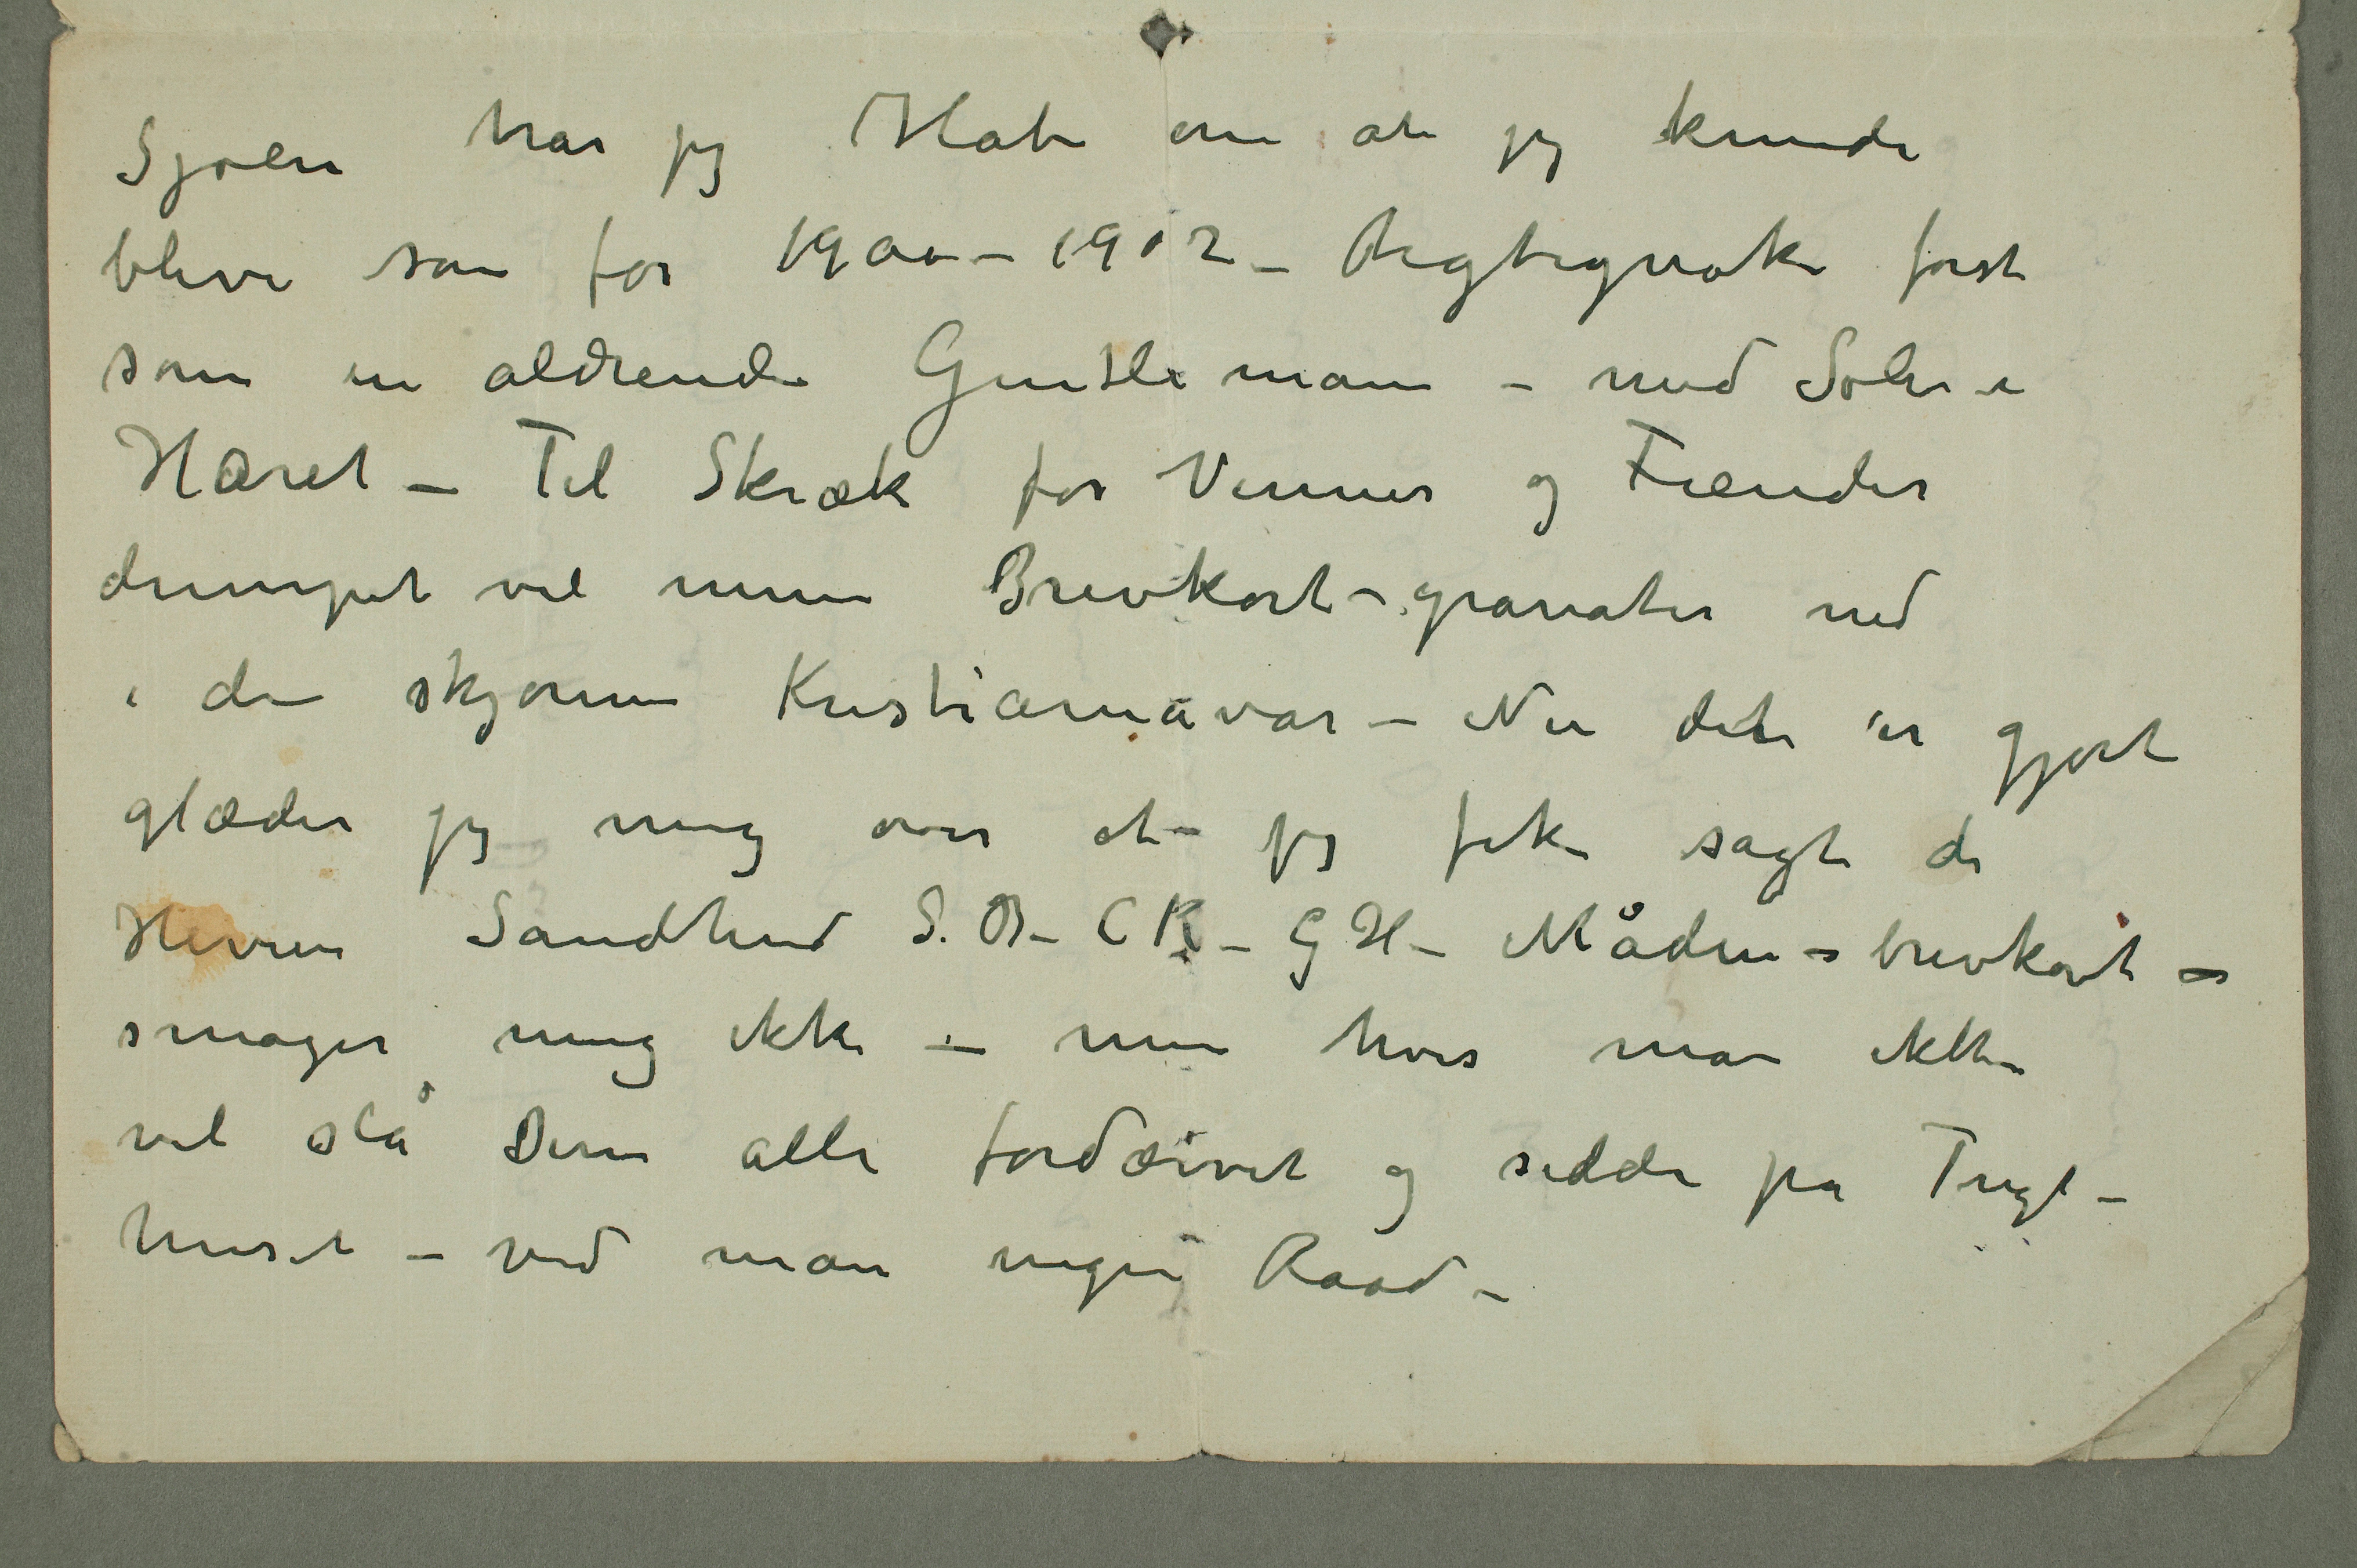 Sjølen har jeg Håb om at jeg kunde
blive som før 1900–1902 – Rigtignok først
som en aldrende Gentleman – med Sølv i
Håret – Til Skræk for Venner og Fiender
dumpet vel mine Brevkort-granater ned
i den skjønne Kristianiavår – Nu det er gjort
glæder jeg mig over at jeg fik sagt de
Herrer Sandhed S. B – C K – G H – Måden – brevkort –
smager mig ikke – men hvis man ikke
vil slå Dem alle fordærvet og sidde på Tugt-
huset – ved man ingen Raad –